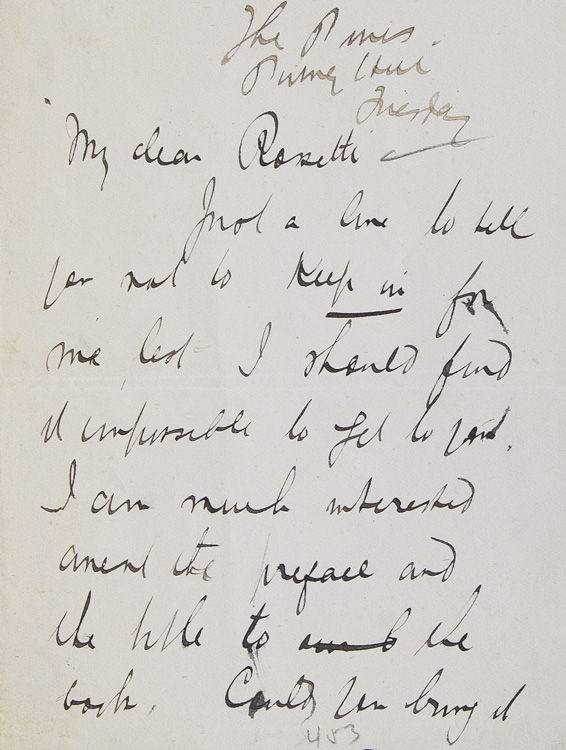 The Pines.
Putney Hill
Tuesday
My dear Rossetti
Just a line to tell
you not to keep in for
me, lest I should find
it impossible to get to you.
I am much interested
anent the preface and
the title to the
book. Could you bring it
453